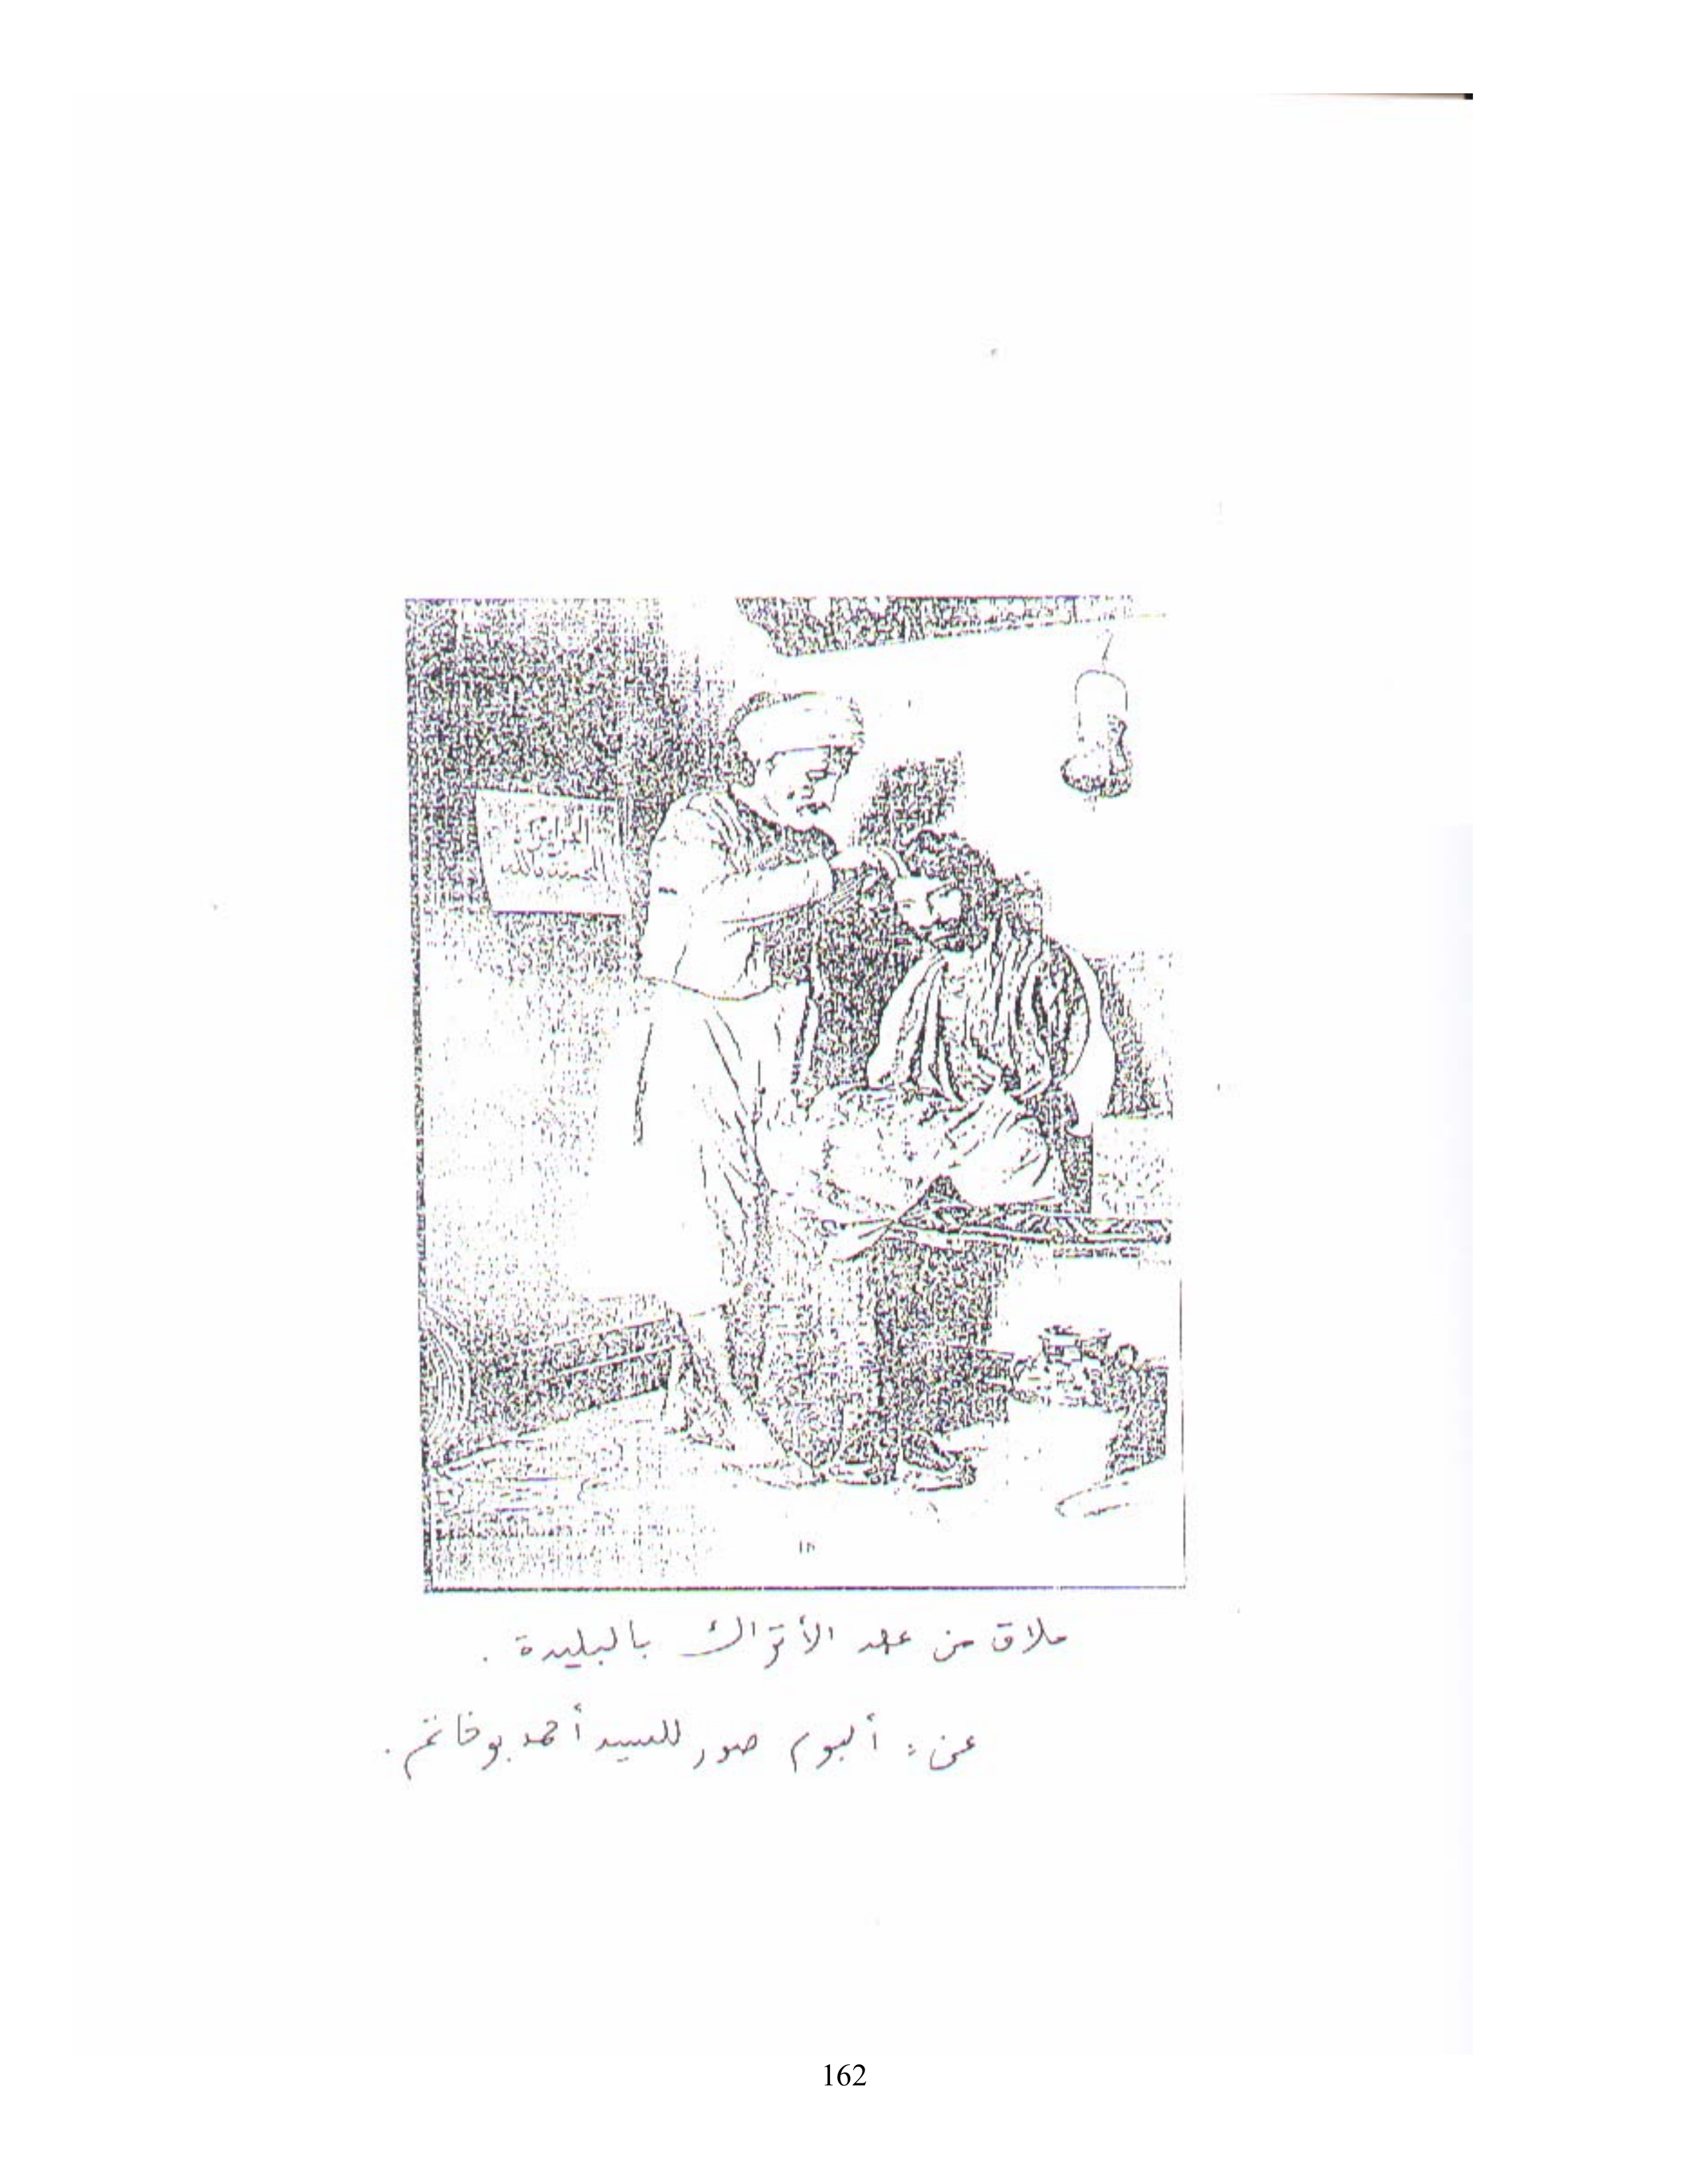 حلاق من عهد الأتراك بالبليدة .
عن : ألبوم صور للسيد أحمد بوخاتم .
162